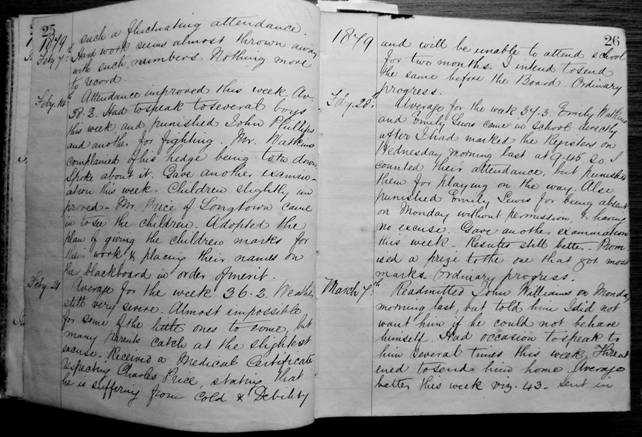 25
1879
such a fluctuating attendance.
Feby 7th Hard work seems almost thrown away
with such numbers. Nothing more
to record.
Feby 14th Attendance improved this week Av.
38.2. Had to speak to several boys
this week and punished John Phillips
and another for fighting. Mr. Watkins
complained of his hedge being tore down
Spoke about it. Gave another examin-
ation this week. Children slightly im
proved. Mr. Price of Longtown came
in to see the children. Adopted the
plan of giving the children marks for
their work & placing their names on
the blackboard in order of merit.
Feby 21 Average for the week 36.2. Weather
still very severe. Almost impossible
for some of the little ones to come, but
many Parents catch at the slightest
excuse. Received a Medical Certificate
respecting Charles Price, stating that
he is suffering from Cold & Debility
26
1879
and will be unable to attend school
for two months. I intend to send
the same before the Board. Ordinary
progress.
Feby 28th Average for the week 37.3. Emily Watkins
and Emily Lewis came in School directly
after I had marked the Registers on
Wednesday morning last at 9.45 so I
counted their attendance, but punished
them for playing on the way. Also
punished Emily Lewis for being absent
on Monday without permission, & having
no excuse. Gave another examination
this week. Results still better. Prom
ised a prize to the one that got most
marks. Ordinary progress.
March 7th Readmitted John Williams on Monday
morning last, but told him I did not
want him if he could not behave
himself. Had occasion to speak to
him several times this week, Threat
ened to send him home. Average
better this week viz. 43. Sent in